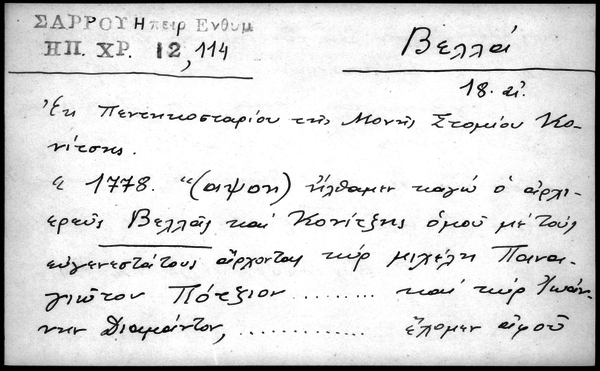 ΣΑΡΡΟΥ Ηπειρ Ενθυμ
ΗΠ. ΧΡ. 12, 114
Βελλά
18. αἰ.
Ἐκ Πεντηκοσταρίου τῆς Μονῆς Στομίου Κο-
νίτσης.
1778. "(αψοη) ἤλθαμεν καγώ ὁ ἀρχι-
ερεῦς Βελλᾶς καί Κονίτζης ὁμοῦ μέ τούς
εὐγενεστάτους ἄρχοντας κύρ μιχέλη Πανα-
γιώτον Πότζιον......... καί κύρ Ἰωάν-
νην Διαμάντον, ............. ἔλομεν ἀφοῦ